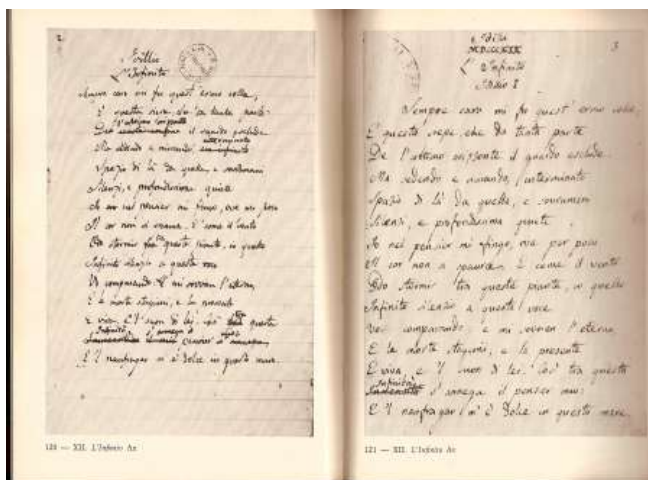 2.
Idillio
L'Infinito
Sempre caro mi fu quest'ermo colle,
E questa siepe, che da tanta parte
Dell'ultimo orizzonte
De il guardo esclude.
Ma sedendo e mirando, interminato
Spazio di là da quella, e sovrumani
Silenzi, e profondissima quiete
Io nel pensier mi fingo, ove per poco
Il cor non si spaura. E come il vento
Odo stormir tra queste piante, io quello
Infinito silenzio a questa voce
Vo comparando: e mi sovvien l'eterno,
E le morte stagioni, e la presente
E viva, e 'l suon di lei. Così questa
E 'l naufragar m'è dolce in questo mare.
120 — XII. L'Infinito An
3
Idilli
MDCCCXIX
L'Infinito
Idillio I
Sempre caro mi fu quest'ermo colle,
E questa siepe, che da tanta parte
De l'ultimo orizzonte il guardo esclude.
Ma sedendo e mirando, interminato
Spazio di là da quella, e sovrumani
Silenzi, e profondissima quiete
Io nel pensier mi fingo, ove per poco
Il cor non si spaura. E come il vento
Odo stormir tra queste piante, io quello
Infinito silenzio a questa voce
Vo comparando: e mi sovvien l'eterno,
E le morte stagioni, e la presente
E viva, e 'l suon di lei. Così tra questa
Infinità s'annega il pensier mio:
E 'l naufragar m'è dolce in questo mare.
121 — XII. L'Infinito Av